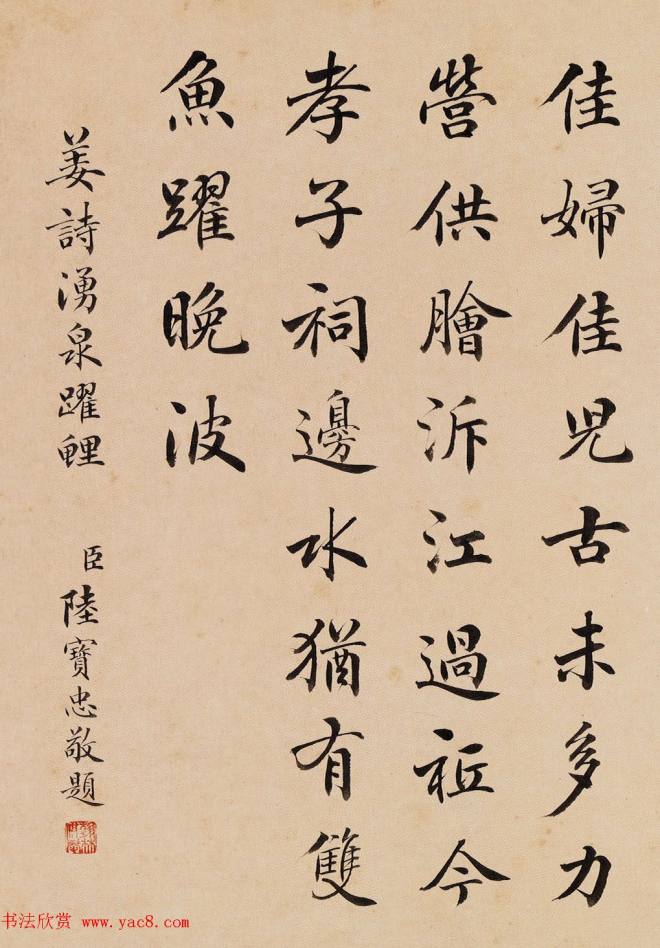 佳婦佳児古未多力
營供膾泝江過祗今
孝子祠邊水猶有雙
魚躍晚波
姜詩湧泉躍鯉 臣陸寶忠敬題
书法欣赏 www.yac8.com